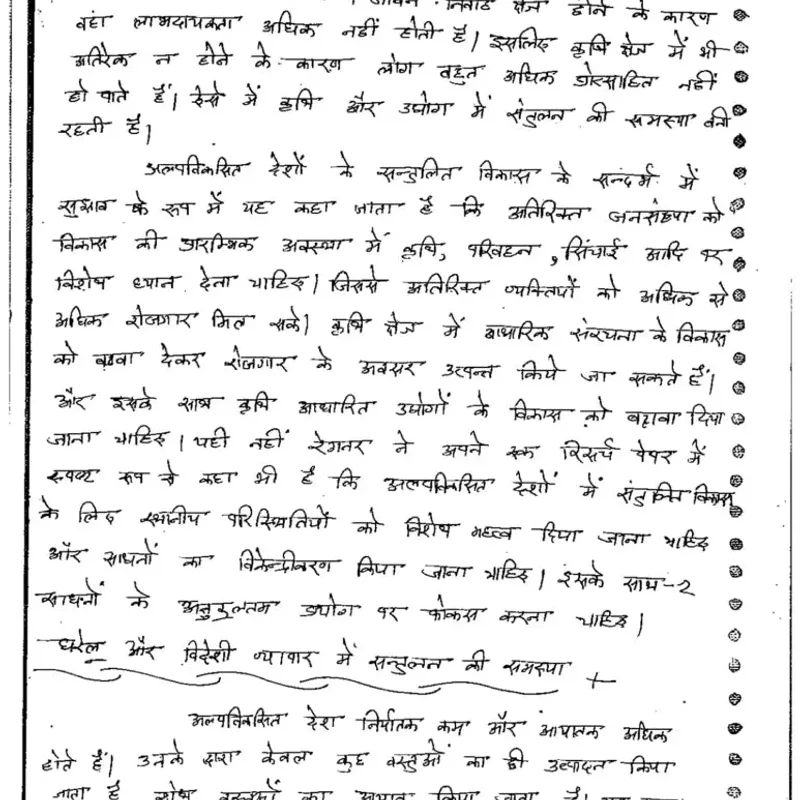 जीवन निर्वाह क्षेत्र होने के कारण
वहां लाभदायकता अधिक नहीं होती है। इसलिए कृषि क्षेत्र में भी
अतिरेक न होने के कारण लोग बहुत अधिक प्रोत्साहित नहीं
हो पाते हैं। ऐसे में कृषि और उद्योग में संतुलन की समस्या बनी
रहती है।
अल्पविकसित देशों के सन्तुलित विकास के सन्दर्भ में
सुझाव के रूप में यह कहा जाता है कि अतिरिक्त जनसंख्या को
विकास की प्रारम्भिक अवस्था में कृषि, परिवहन, सिंचाई आदि पर
विशेष ध्यान देना चाहिए। जिससे अतिरिक्त व्यक्तियों को अधिक से
अधिक रोजगार मिल सके। कृषि क्षेत्र में आधारिक संरचना के विकास
को बढावा देकर रोजगार के अवसर उत्पन्न किये जा सकते हैं।
और इसके साथ कृषि आधारित उद्योगों के विकास को बढ़ावा दिया
जाना चाहिए। यही नहीं रेगनर ने अपने एक रिसर्च पेपर में
स्पष्ट रूप से कहा भी है कि अल्पविकसित देशों में संतुलित विकास
के लिए स्थानीय परिस्थितियों को विशेष महत्व दिया जाना चाहिए
और साधनों का विकेन्द्रीकरण किया जाना चाहिए। इसके साथ-2
साधनों के अनुकूलतम उपयोग पर फोकस करना चाहिए।
घरेलू और विदेशी व्यापार में सन्तुलन की समस्या
अल्पविकसित देश निर्यातक कम और आयातक अधिक
होते हैं। उनके द्वारा केवल कुछ वस्तुओं का ही उत्पादन किया
जाता है शेष वस्तुओं का आयात किया जाता है।